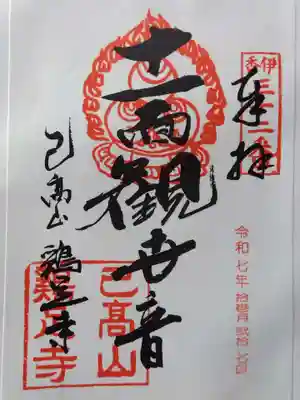 奉拝
伊香三十三番
令和七年 拾壱月 弐拾七日
十一面観世音
己高山
鶏足寺
己高山
鶏足寺